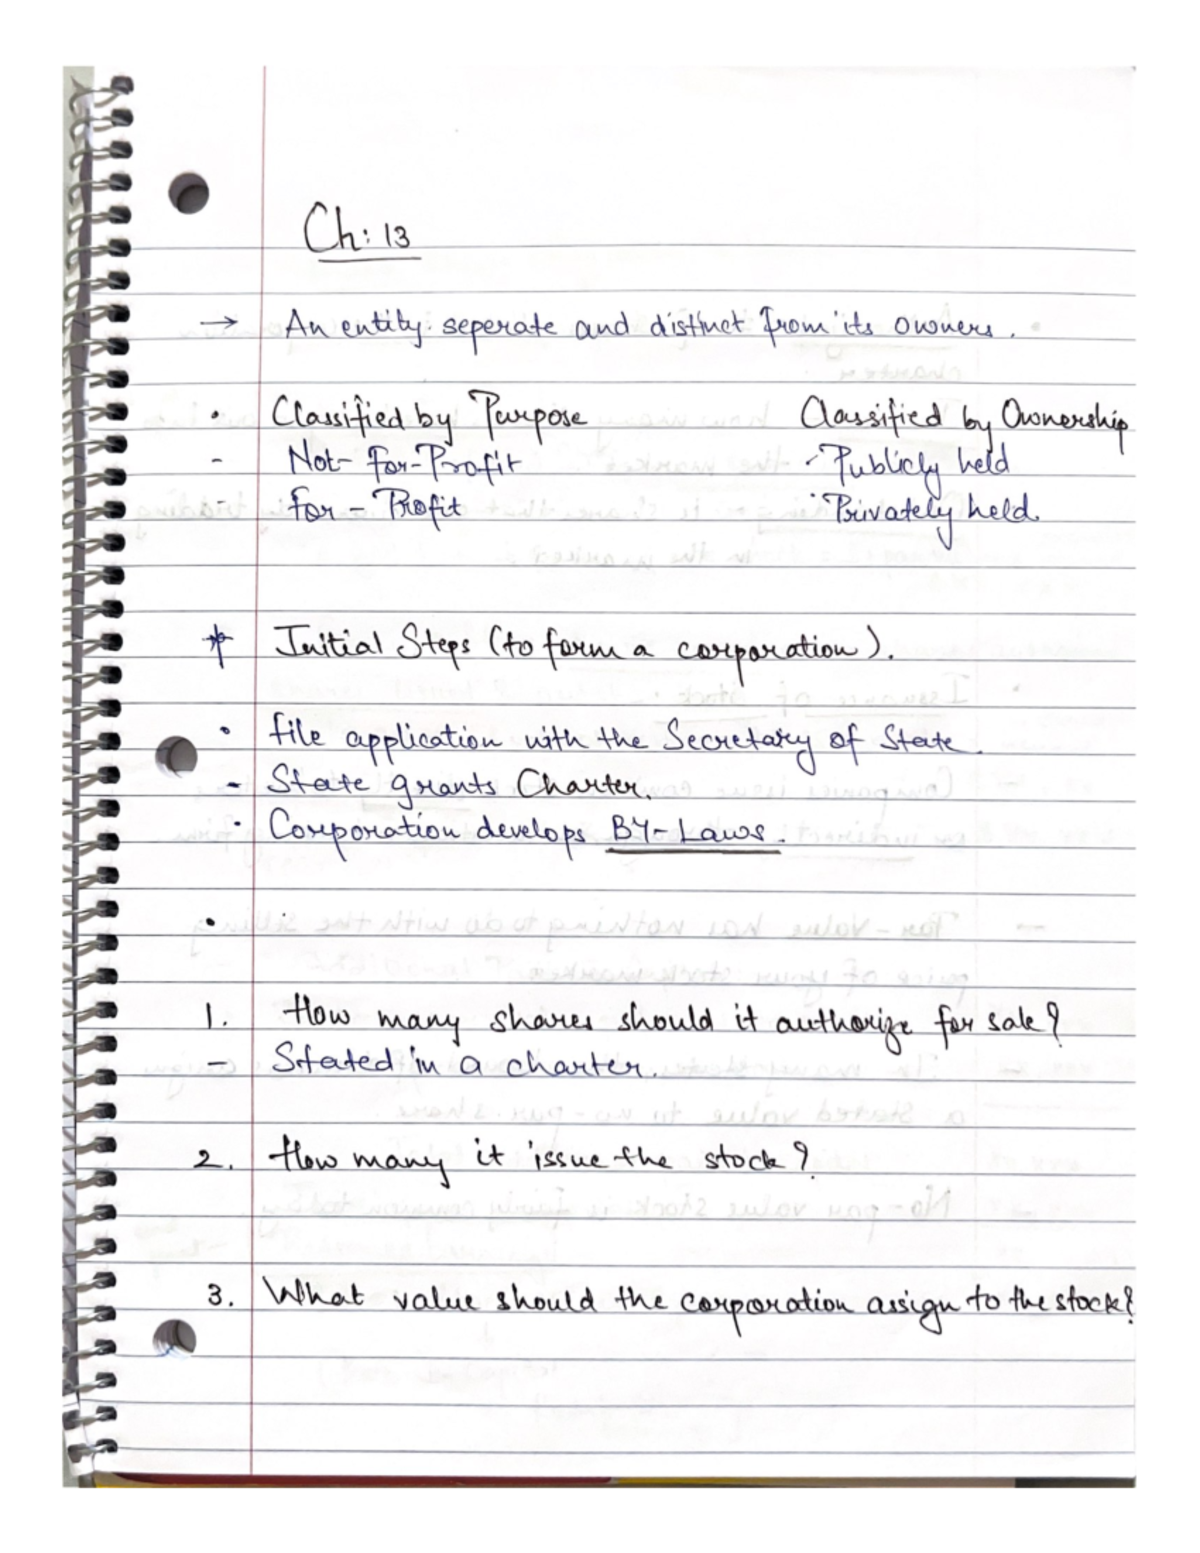 Ch: 13
→ An entity seperate and distinct from its owners.
• Classified by Purpose Classified by Ownership
- Not-for-Profit - Publicly held
- for-Profit - Privately held.
* Initial Steps (to form a corporation).
• file application with the Secretary of State.
- State grants Charter.
• Corporation develops BY-Laws.
•
1. How many shares should it authorize for sale?
- Stated in a charter.
2. How many it issue the stock?
3. What value should the corporation assign to the stock?